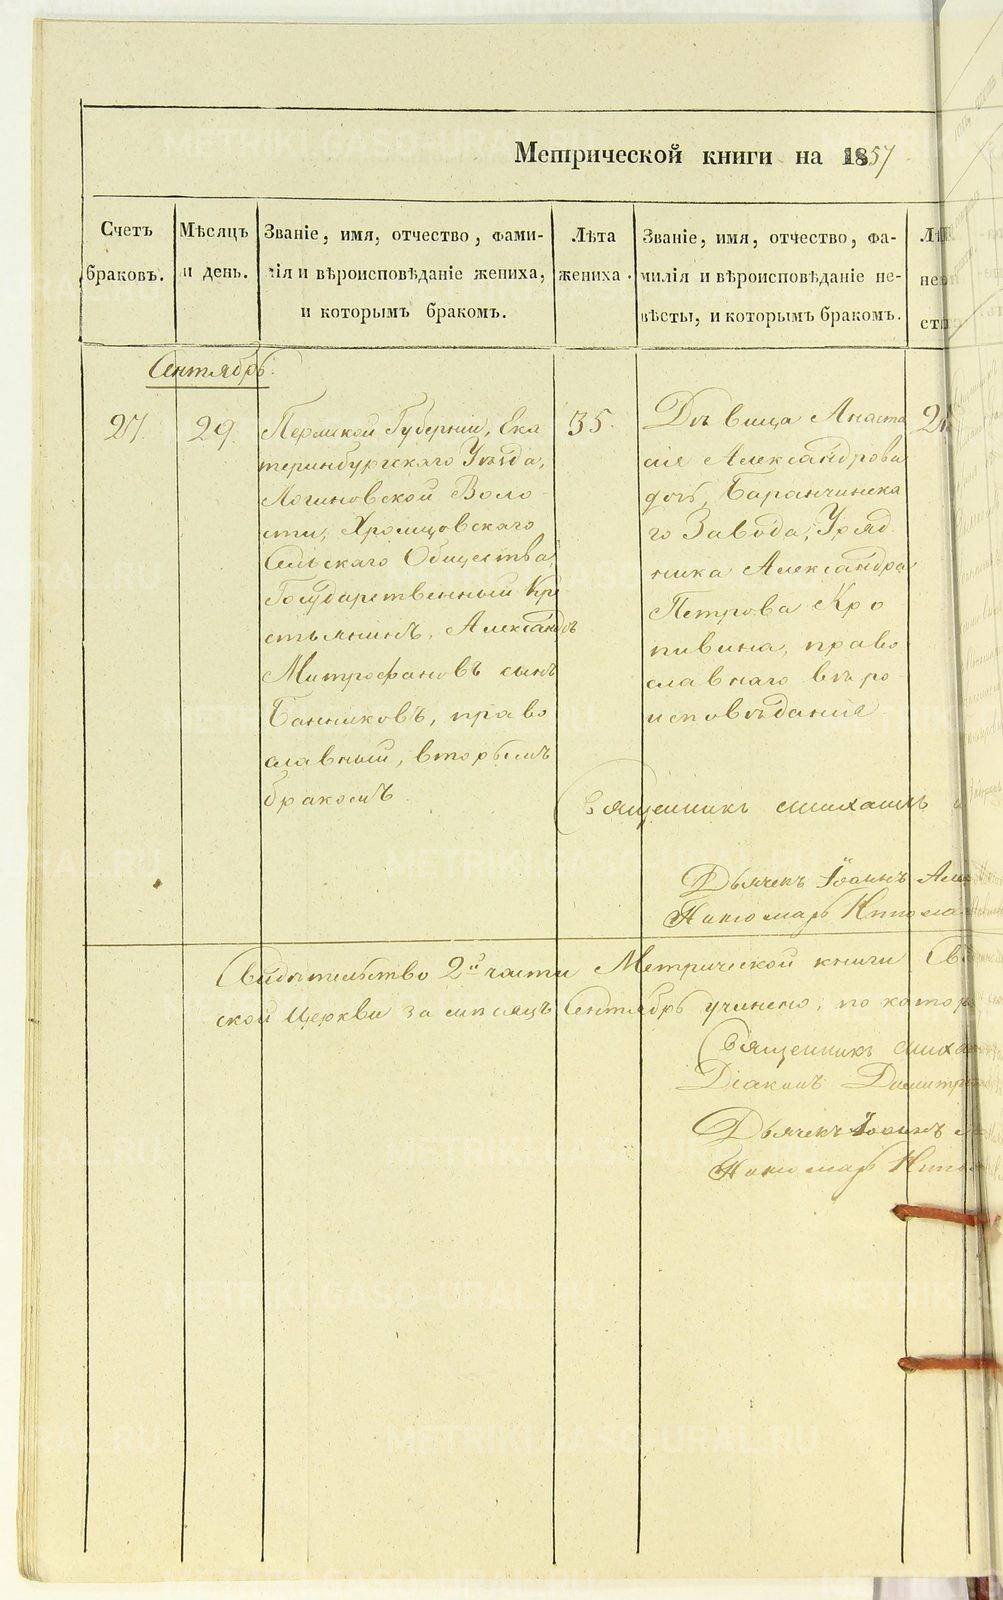 Метрической книги на 1857
Счетъ браковъ.
Мѣсяцъ и день.
Званіе, имя, отчество, фами-
лія и вѣроисповѣданіе жениха,
и которымъ бракомъ.
Лѣта жениха.
Званіе, имя, отчество, фа-
милія и вѣроисповѣданіе не-
вѣсты, и которымъ бракомъ.
Сентябрь.
27.
29.
Пермской Губерніи, Ека
теринбургскаго Уѣзда,
Логиновской Воло
сти, Хромцовскаго
Сельскаго Общества,
Государственный Кре
стьянинъ, Александръ
Митрофановъ сынъ
Банниковъ, право
славный, вторымъ
бракомъ.
35.
Дѣвица Анаста
сія Александрова
дочь, Баранчинска
го Завода, Уряд
ника Александра
Петрова Кро
пивина, право
славнаго вѣро
исповѣданія
Священникъ Михаилъ
Дьячекъ Іоаннъ
Пономарь
Свидѣтельство 2й части Метрической книги
ской Церкви за мѣсяцъ Сентябрь учинено, по
Священникъ
Діаконъ
Дьячекъ Іоаннъ
Пономарь
METRIKI.GASO-URAL.RU